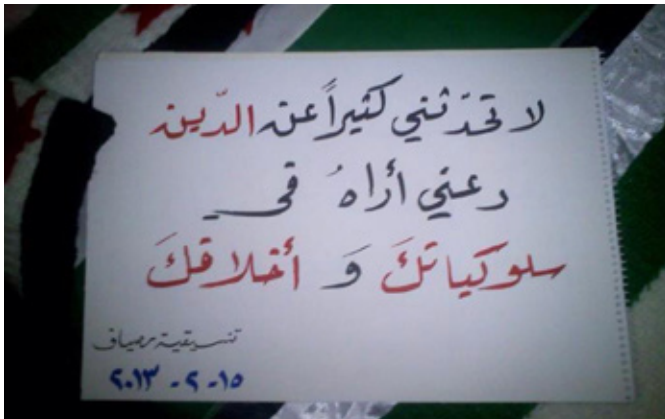 لا تحدّثني كثيراً عن الدّين
دعني أراهُ في
سلوكياتكَ وَ أخلاقكَ
تنسيقية مصياف
١٥-٢-٢٠١٣